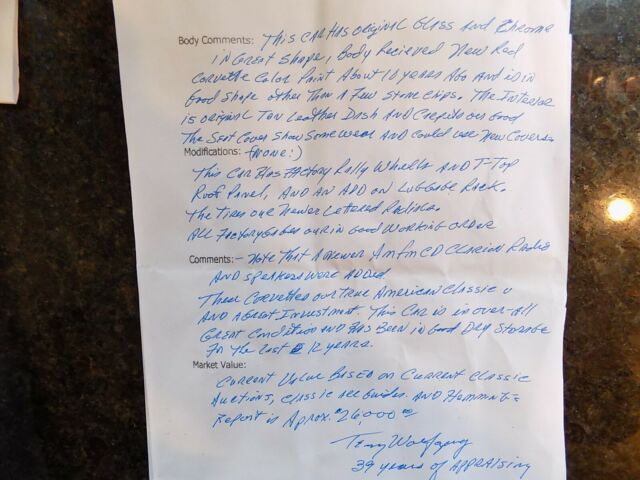 Body Comments: This car has original Glass and Chrome
in Great shape, Body Recieved New Red
Corvette Color Paint About 10 years Ago And is in
Good shape other than A Few stone chips. The Interior
is original Tan Leather Dash And Carpits are Good
The Seat Cover Show Some wear And Could use New Covers.
Modifications: (None:)
This Car Has Factory Rally Wheels And T-Top
Roof Panel, And An Add on Luggage Rack.
The Tires are Newer Lettered Radials.
All Factory Gages are in Good Working order
Comments: - Note That A newer Am fm CD Clarion Radio
And speakers were Added
These Corvettes are True American Classic's
And A Great Investment. This Car is in over-All
Great Condition And Has Been in Good Dry Storage
For The Last 12 years.
Market Value:
Current Value Based on Current Classic
Auctions, Classic Guides. And Hemmings
Report is Aprox. $26,000 00
Terry Wolfgang
39 years of Appraising